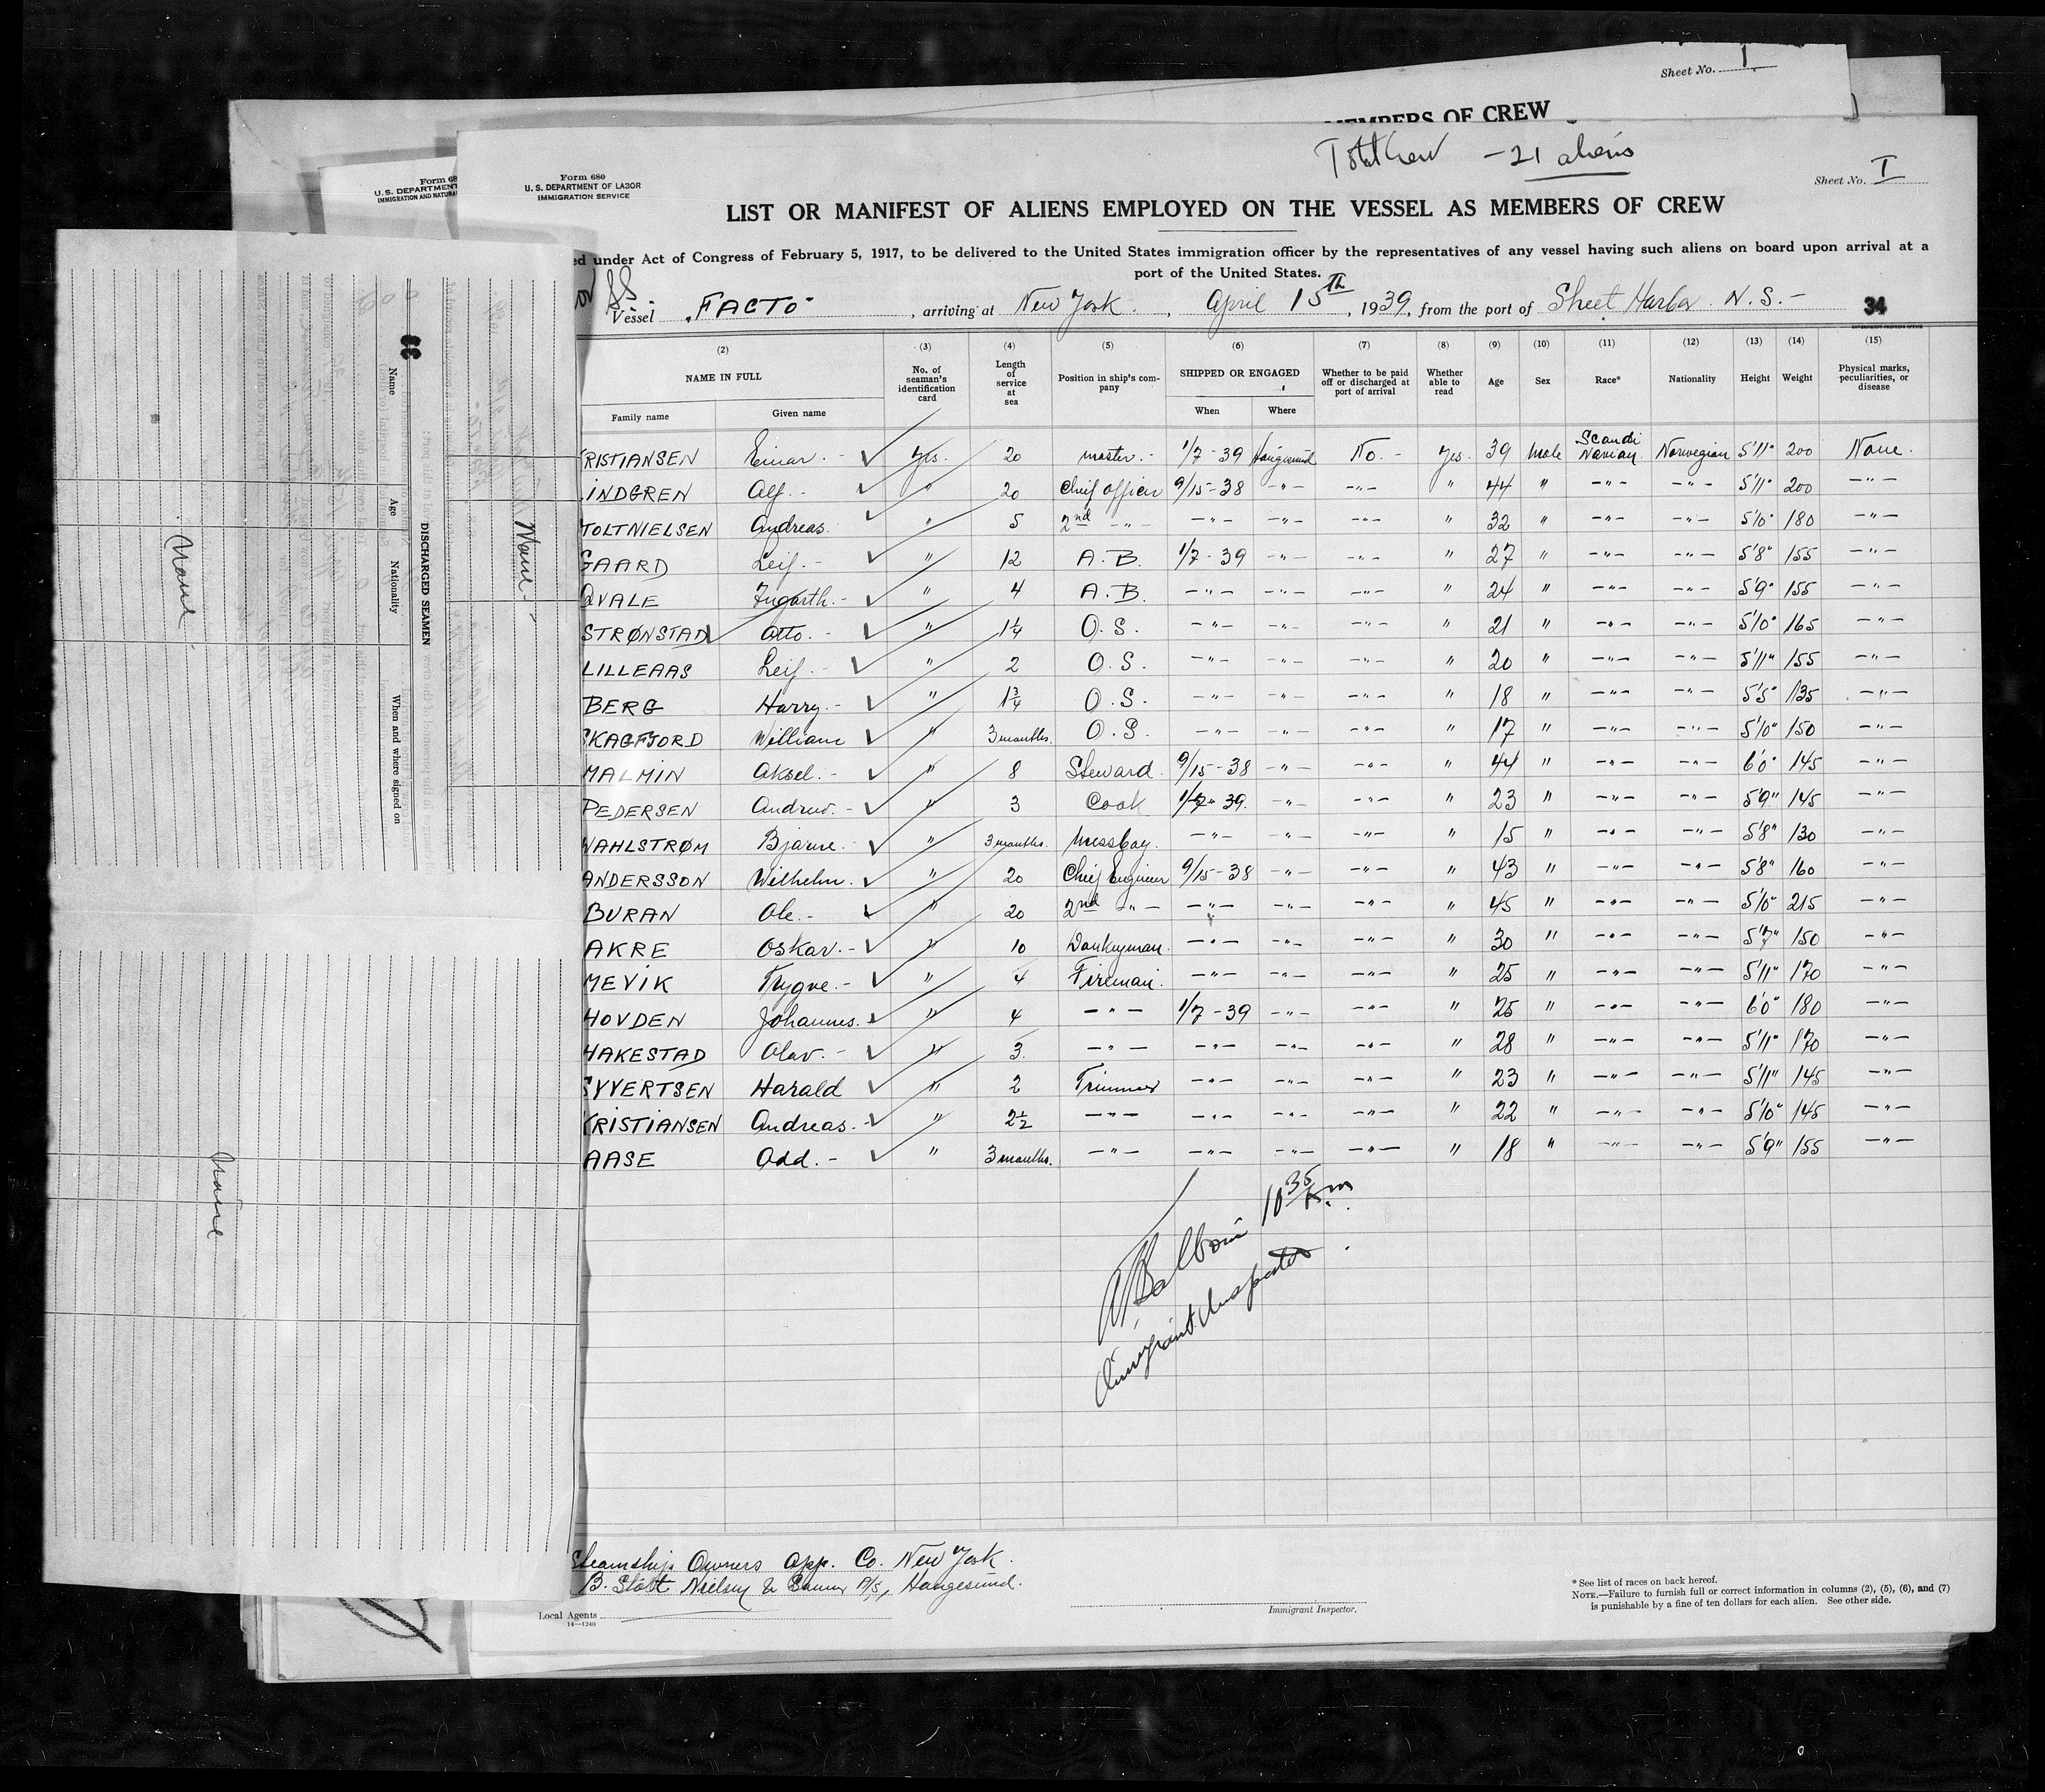 Sheet No. 1
MEMBERS OF CREW
Total Crew - 21 aliens
Form 680
U. S. DEPARTMENT OF LABOR
IMMIGRATION SERVICE
Sheet No. I
LIST OR MANIFEST OF ALIENS EMPLOYED ON THE VESSEL AS MEMBERS OF CREW
ed under Act of Congress of February 5, 1917, to be delivered to the United States immigration officer by the representatives of any vessel having such aliens on board upon arrival at a
port of the United States.
SS Vessel FACTO, arriving at New York, April 15th, 1939, from the port of Sheet Harbor N.S.- 34
(2) (3) (4) (5) (6) (7) (8) (9) (10) (11) (12) (13) (14) (15)
NAME IN FULL No. of seaman's identification card Length of service at sea Position in ship's company SHIPPED OR ENGAGED Whether to be paid off or discharged at port of arrival Whether able to read Age Sex Race* Nationality Height Weight Physical marks, peculiarities, or disease
Family name Given name When Where
RISTIANSEN Einar. - ✓ Yes. 20 master. - 1/7-39 Haugesund No. - Yes. 39 male Scandinavian Norwegian 5'11" 200 None.
INDGREN Alf. - ✓ " 20 Chief officer 9/15-38 -"- -"- " 44 " -"- -"- 5'11" 200 -"-
TOLTNIELSEN Andreas. ✓ " 5 2nd -"- -"- -"- -"- " 32 " -"- -"- 5'10" 180 -"-
GAARD Leif. - ✓ " 12 A.B. 1/7-39 -"- -"- " 27 " -"- -"- 5'8" 155 -"-
QVALE Ingarth. - ✓ " 4 A.B. -"- -"- -"- " 24 " -"- -"- 5'9" 155 -"-
STRØNSTAD ✓ Otto. - ✓ " 1 1/4 O.S. -"- -"- -"- " 21 " -"- -"- 5'10" 165 -"-
LILLEAAS Leif. - ✓ " 2 O.S. -"- -"- -"- " 20 " -"- -"- 5'11" 155 -"-
BERG Harry. - ✓ " 1 3/4 O.S. -"- -"- -"- " 18 " -"- -"- 5'5" 135 -"-
SKAGFJORD William ✓ " 3 months. O.S. -"- -"- -"- " 17 " -"- -"- 5'10" 150 -"-
MALMIN Aksel. - ✓ " 8 Steward. 9/15-38 -"- -"- " 44 " -"- -"- 6'0" 145 -"-
PEDERSEN Andrew. - ✓ " 3 Cook 1/7-39. -"- -"- " 23 " -"- -"- 5'9" 145 -"-
WAHLSTRØM Bjarne. - ✓ " 3 months. Messboy. -"- -"- -"- " 15 " -"- -"- 5'8" 130 -"-
ANDERSSON Wilhelm. ✓ " 20 Chief Engineer 9/15-38 -"- -"- " 43 " -"- -"- 5'8" 160 -"-
BURAN Ole. - ✓ " 20 2nd -"- -"- -"- -"- " 45 " -"- -"- 5'10" 215 -"-
AKRE Oskar. - ✓ " 10 Donkeyman. -"- -"- -"- " 30 " -"- -"- 5'7" 150 -"-
MEVIK Trygve. - ✓ " 4 Fireman. -"- -"- -"- " 25 " -"- -"- 5'11" 170 -"-
HOVDEN Johannes. ✓ " 4 -"- 1/7-39 -"- -"- " 25 " -"- -"- 6'0" 180 -"-
HAKESTAD Olav. - ✓ " 3. -"- -"- -"- -"- " 28 " -"- -"- 5'11" 170 -"-
SYVERTSEN Harald ✓ " 2 Trimmer -"- -"- -"- " 23 " -"- -"- 5'11" 145 -"-
KRISTIANSEN Andreas. - ✓ " 2 1/2 -"- -"- -"- -"- " 22 " -"- -"- 5'10" 145 -"-
AASE Odd. - ✓ " 3 months. -"- -"- -"- -"- " 18 " -"- -"- 5'9" 155 -"-
10 35 Am
Immigrant Inspector
Steamship Owners App. Co. New York.
B. Stolt Nielsen & A/S, Haugesund.
Local Agents
14-1240
Immigrant Inspector.
* See list of races on back hereof.
NOTE.—Failure to furnish full or correct information in columns (2), (5), (6), and (7)
is punishable by a fine of ten dollars for each alien. See other side.
Form 68
U. S. DEPARTMENT
IMMIGRATION AND NATUR
33
DISCHARGED SEAMEN
Name Age Nationality When and where signed on
None
None
None